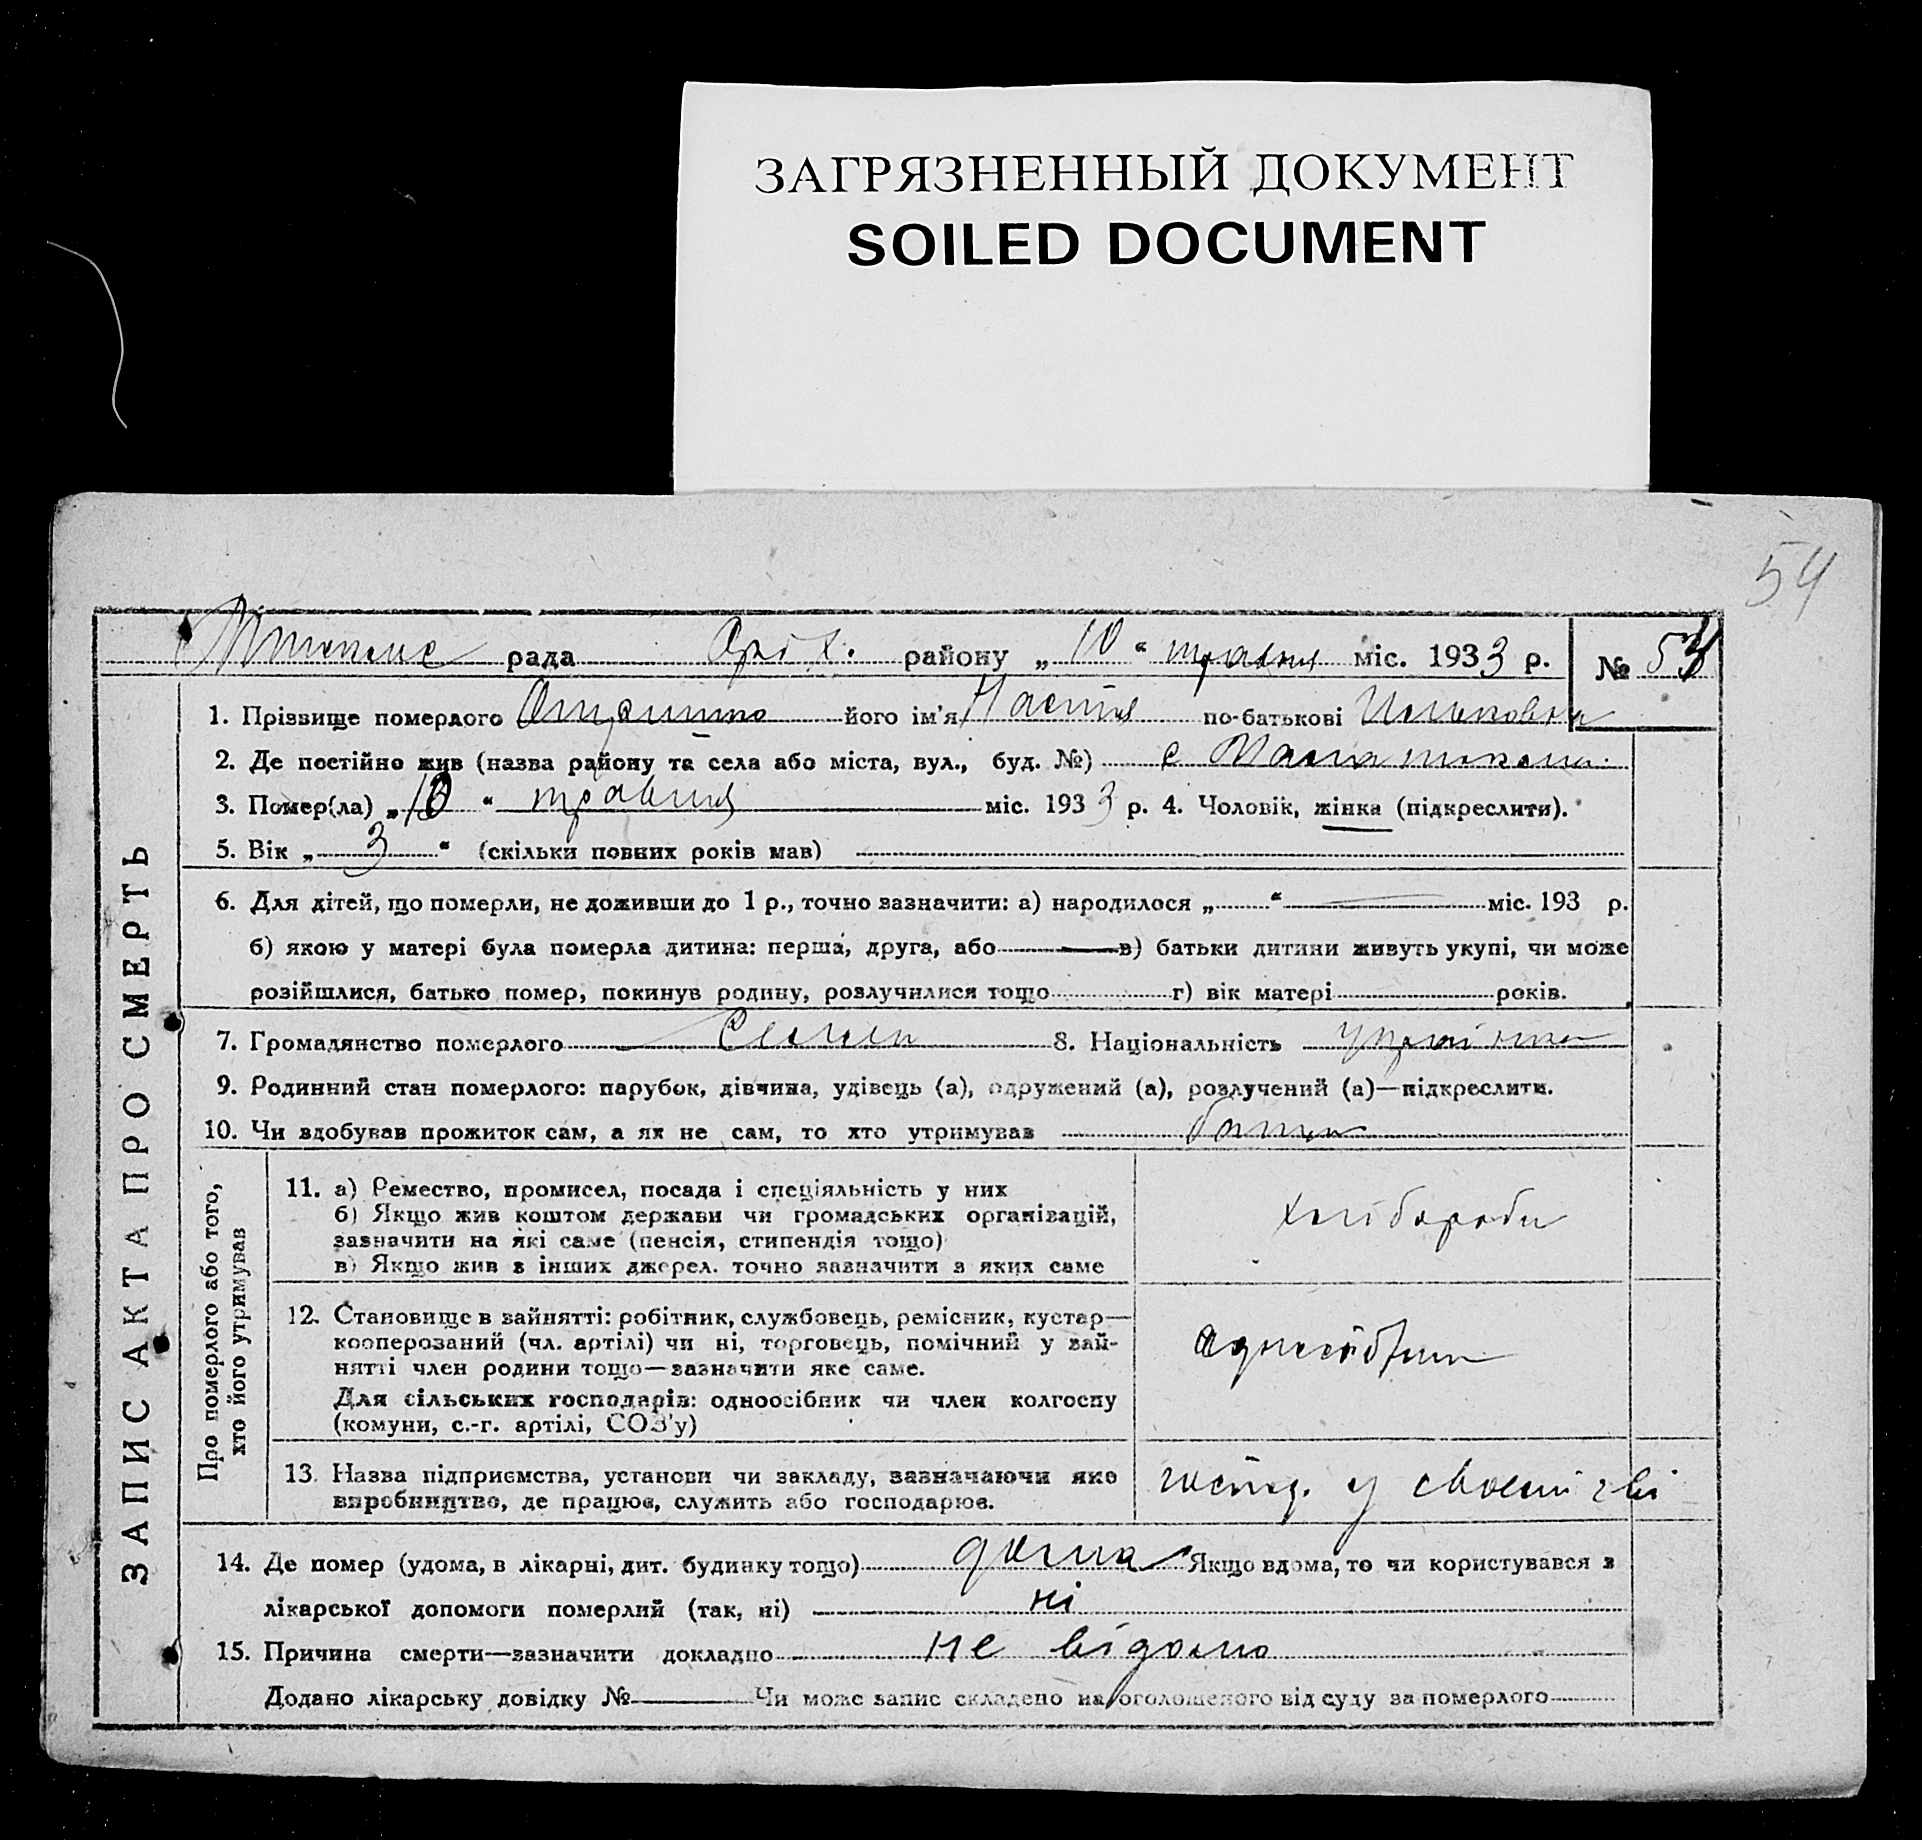 ЗАГРЯЗНЕННЫЙ ДОКУМЕНТ
SOILED DOCUMENT
54
рада Оріх. району „10“ травня міс. 1933 р. № 54
1. Прізвище померлого його ім'я Настя по-батькові
2. Де постійно жив (назва району та села або міста, вул., буд. №) с Мала
3. Помер(ла) „10“ травня міс. 1933 р. 4. Чоловік, жінка (підкреслити).
5. Вік „3“ (скільки повних років мав)
6. Для дітей, що померли, не доживши до 1 р., точно зазначити: а) народилося „ “ міс. 193 р.
б) якою у матері була померла дитина: перша, друга, або — в) батьки дитини живуть укупі, чи може
розійшлися, батько помер, покинув родину, розлучилися тощо г) вік матері років.
7. Громадянство померлого 8. Національність українка
9. Родинний стан померлого: парубок, дівчина, удівець (а), одружений (а), розлучений (а)—підкреслити.
10. Чи здобував прожиток сам, а як не сам, то хто утримував батьки
ЗАПИС АКТА ПРО СМЕРТЬ
Про померлого або того,
хто його утримував
11. а) Ремество, промисел, посада і спеціяльність у них
б) Якщо жив коштом держави чи громадських організацій,
зазначити на які саме (пенсія, стипендія тощо)
в) Якщо жив з інших джерел. точно зазначити з яких саме
хлібороби
12. Становище в зайнятті: робітник, службовець, ремісник, кустар—
кооперований (чл. артілі) чи ні, торговець, помічний у зай-
нятті член родини тощо—зазначити яке саме.
Для сільських господарів: одноосібник чи член колгоспу
(комуни, с.-г. артілі, СОЗ'у)
13. Назва підприємства, установи чи закладу, зазначаючи яке
виробництво, де працює, служить або господарює.
госпд. у своєм г-ві
14. Де помер (удома, в лікарні, дит. будинку тощо) дома Якщо вдома, то чи користувався з
лікарської допомоги померлий (так, ні) ні
15. Причина смерти—зазначити докладно не відомо
Додано лікарську довідку № — Чи може запис складено на оголошеного від суду за померлого